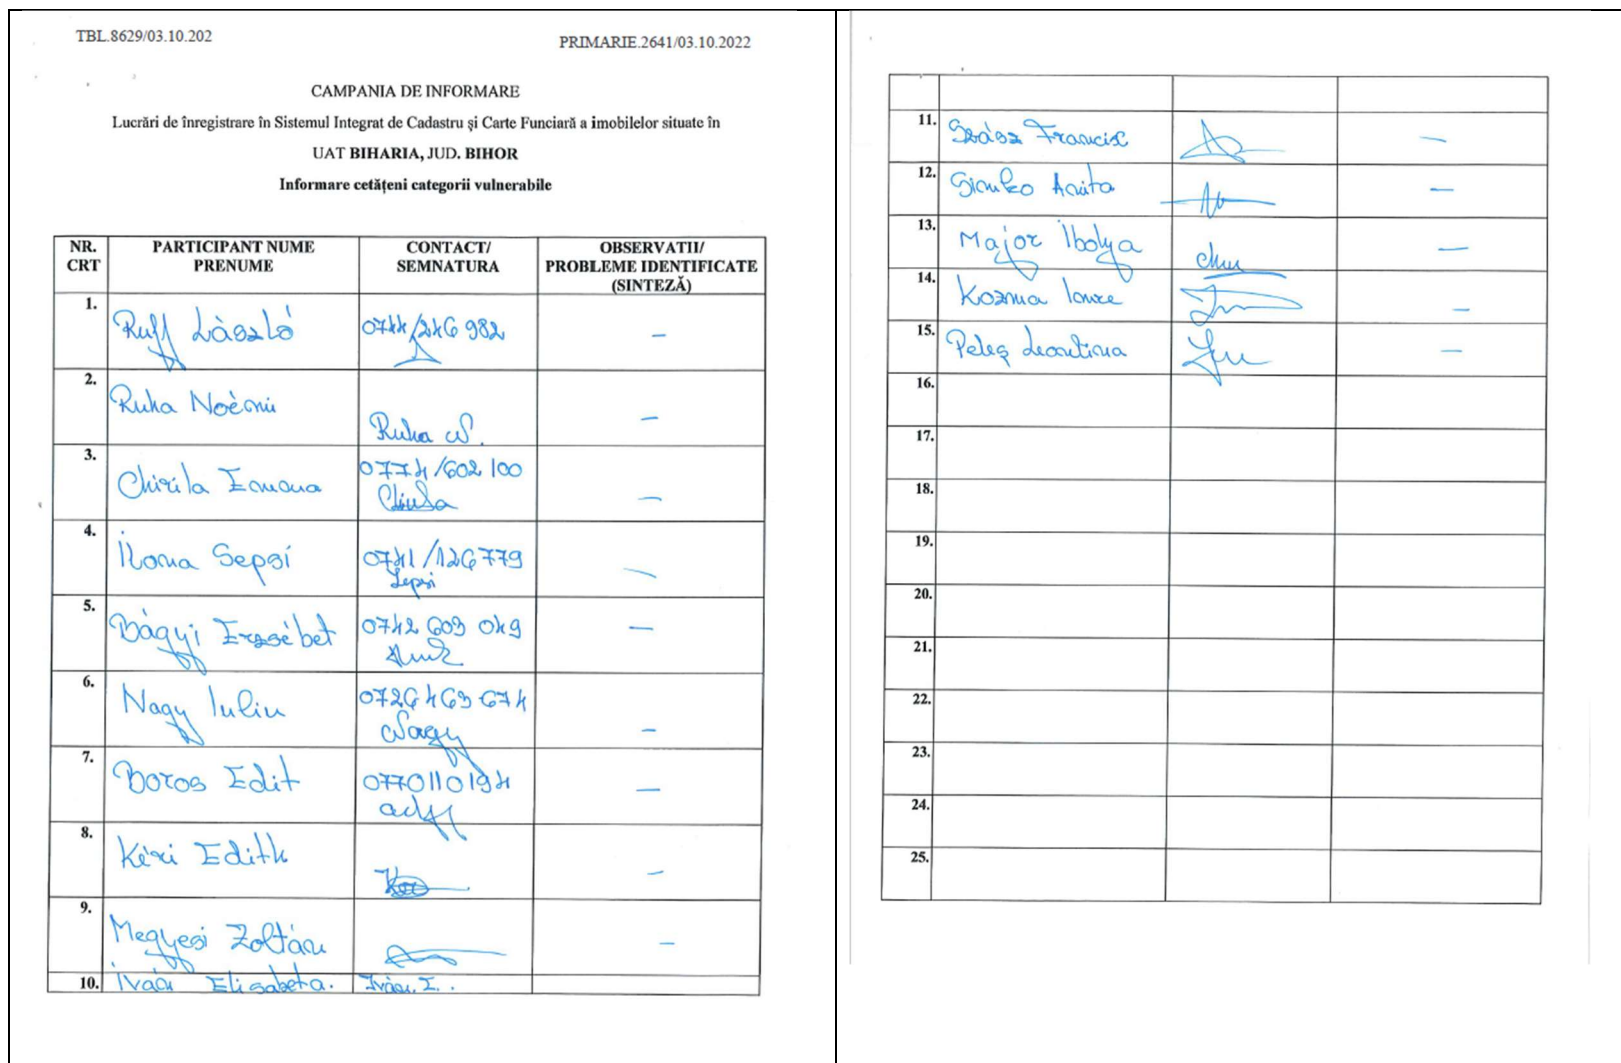 TBL.8629/03.10.202
PRIMARIE.2641/03.10.2022
CAMPANIA DE INFORMARE
Lucrări de înregistrare în Sistemul Integrat de Cadastru și Carte Funciară a imobilelor situate în
UAT BIHARIA, JUD. BIHOR
Informare cetățeni categorii vulnerabile
NR. CRT PARTICIPANT NUME PRENUME CONTACT/ SEMNATURA OBSERVATII/ PROBLEME IDENTIFICATE (SINTEZĂ)
1. Ruff László 0744/246 982 —
2. Ruha Noémi Ruha N. —
3. Chirila 0774/602 100 —
4. Ilona Sepsi 0741/126779 Sepsi —
5. Bágyi Erzsébet 0742 603 049 —
6. Nagy Iuliu 0726 463 674 Nagy —
7. Boros Edit 0770110194 —
8. Kéri Edith —
9. Megyesi Zoltán —
10. Iván Elisabeta. Iván. E.
11. Szász Francisc —
12. Simko Anita —
13. Major Ibolya —
14. Kozma —
15. Peleș Leontina —
16.
17.
18.
19.
20.
21.
22.
23.
24.
25.